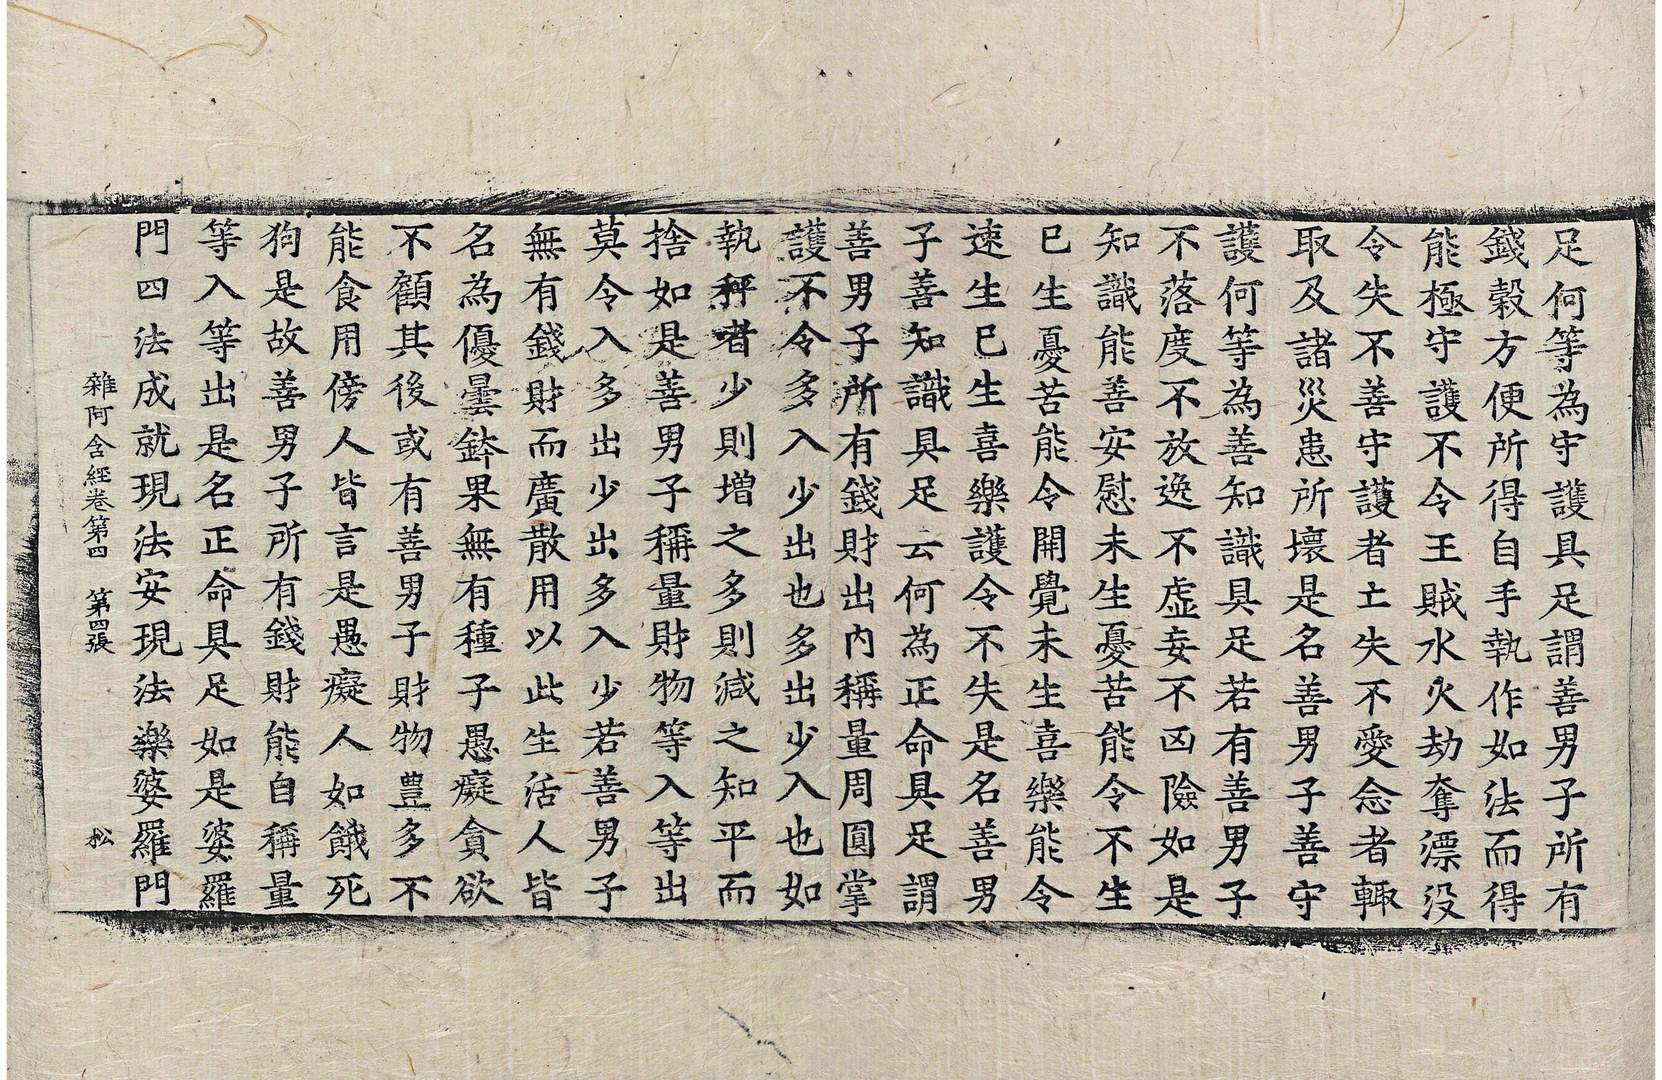 足何等為守護具足謂善男子所有
錢糓方便所得自手執作如法而得
能極守護不令王賊水火劫奪漂没
令失不善守護者亡失不愛念者輙
取及諸災患所壞是名善男子善守
護何等為善知識具足若有善男子
不落度不放逸不虛妄不凶險如是
知識能善安慰未生憂苦能令不生
已生憂苦能令開覺未生喜樂能令
速生已生喜樂護令不失是名善男
子善知識具足云何為正命具足謂
善男子所有錢財出內稱量周圓掌
護不令多入少出也多出少入也如
執秤者少則增之多則減之知平而
捨如是善男子稱量財物等入等出
莫令入多出少出多入少若善男子
無有錢財而廣散用以此生活人皆
名為優曇鉢果無有種子愚癡貪欲
不顧其後或有善男子財物豊多不
能食用傍人皆言是愚癡人如餓死
狗是故善男子所有錢財能自稱量
等入等出是名正命具足如是婆羅
門四法成就現法安現法樂婆羅門
雜阿含經卷第四 第四張 松